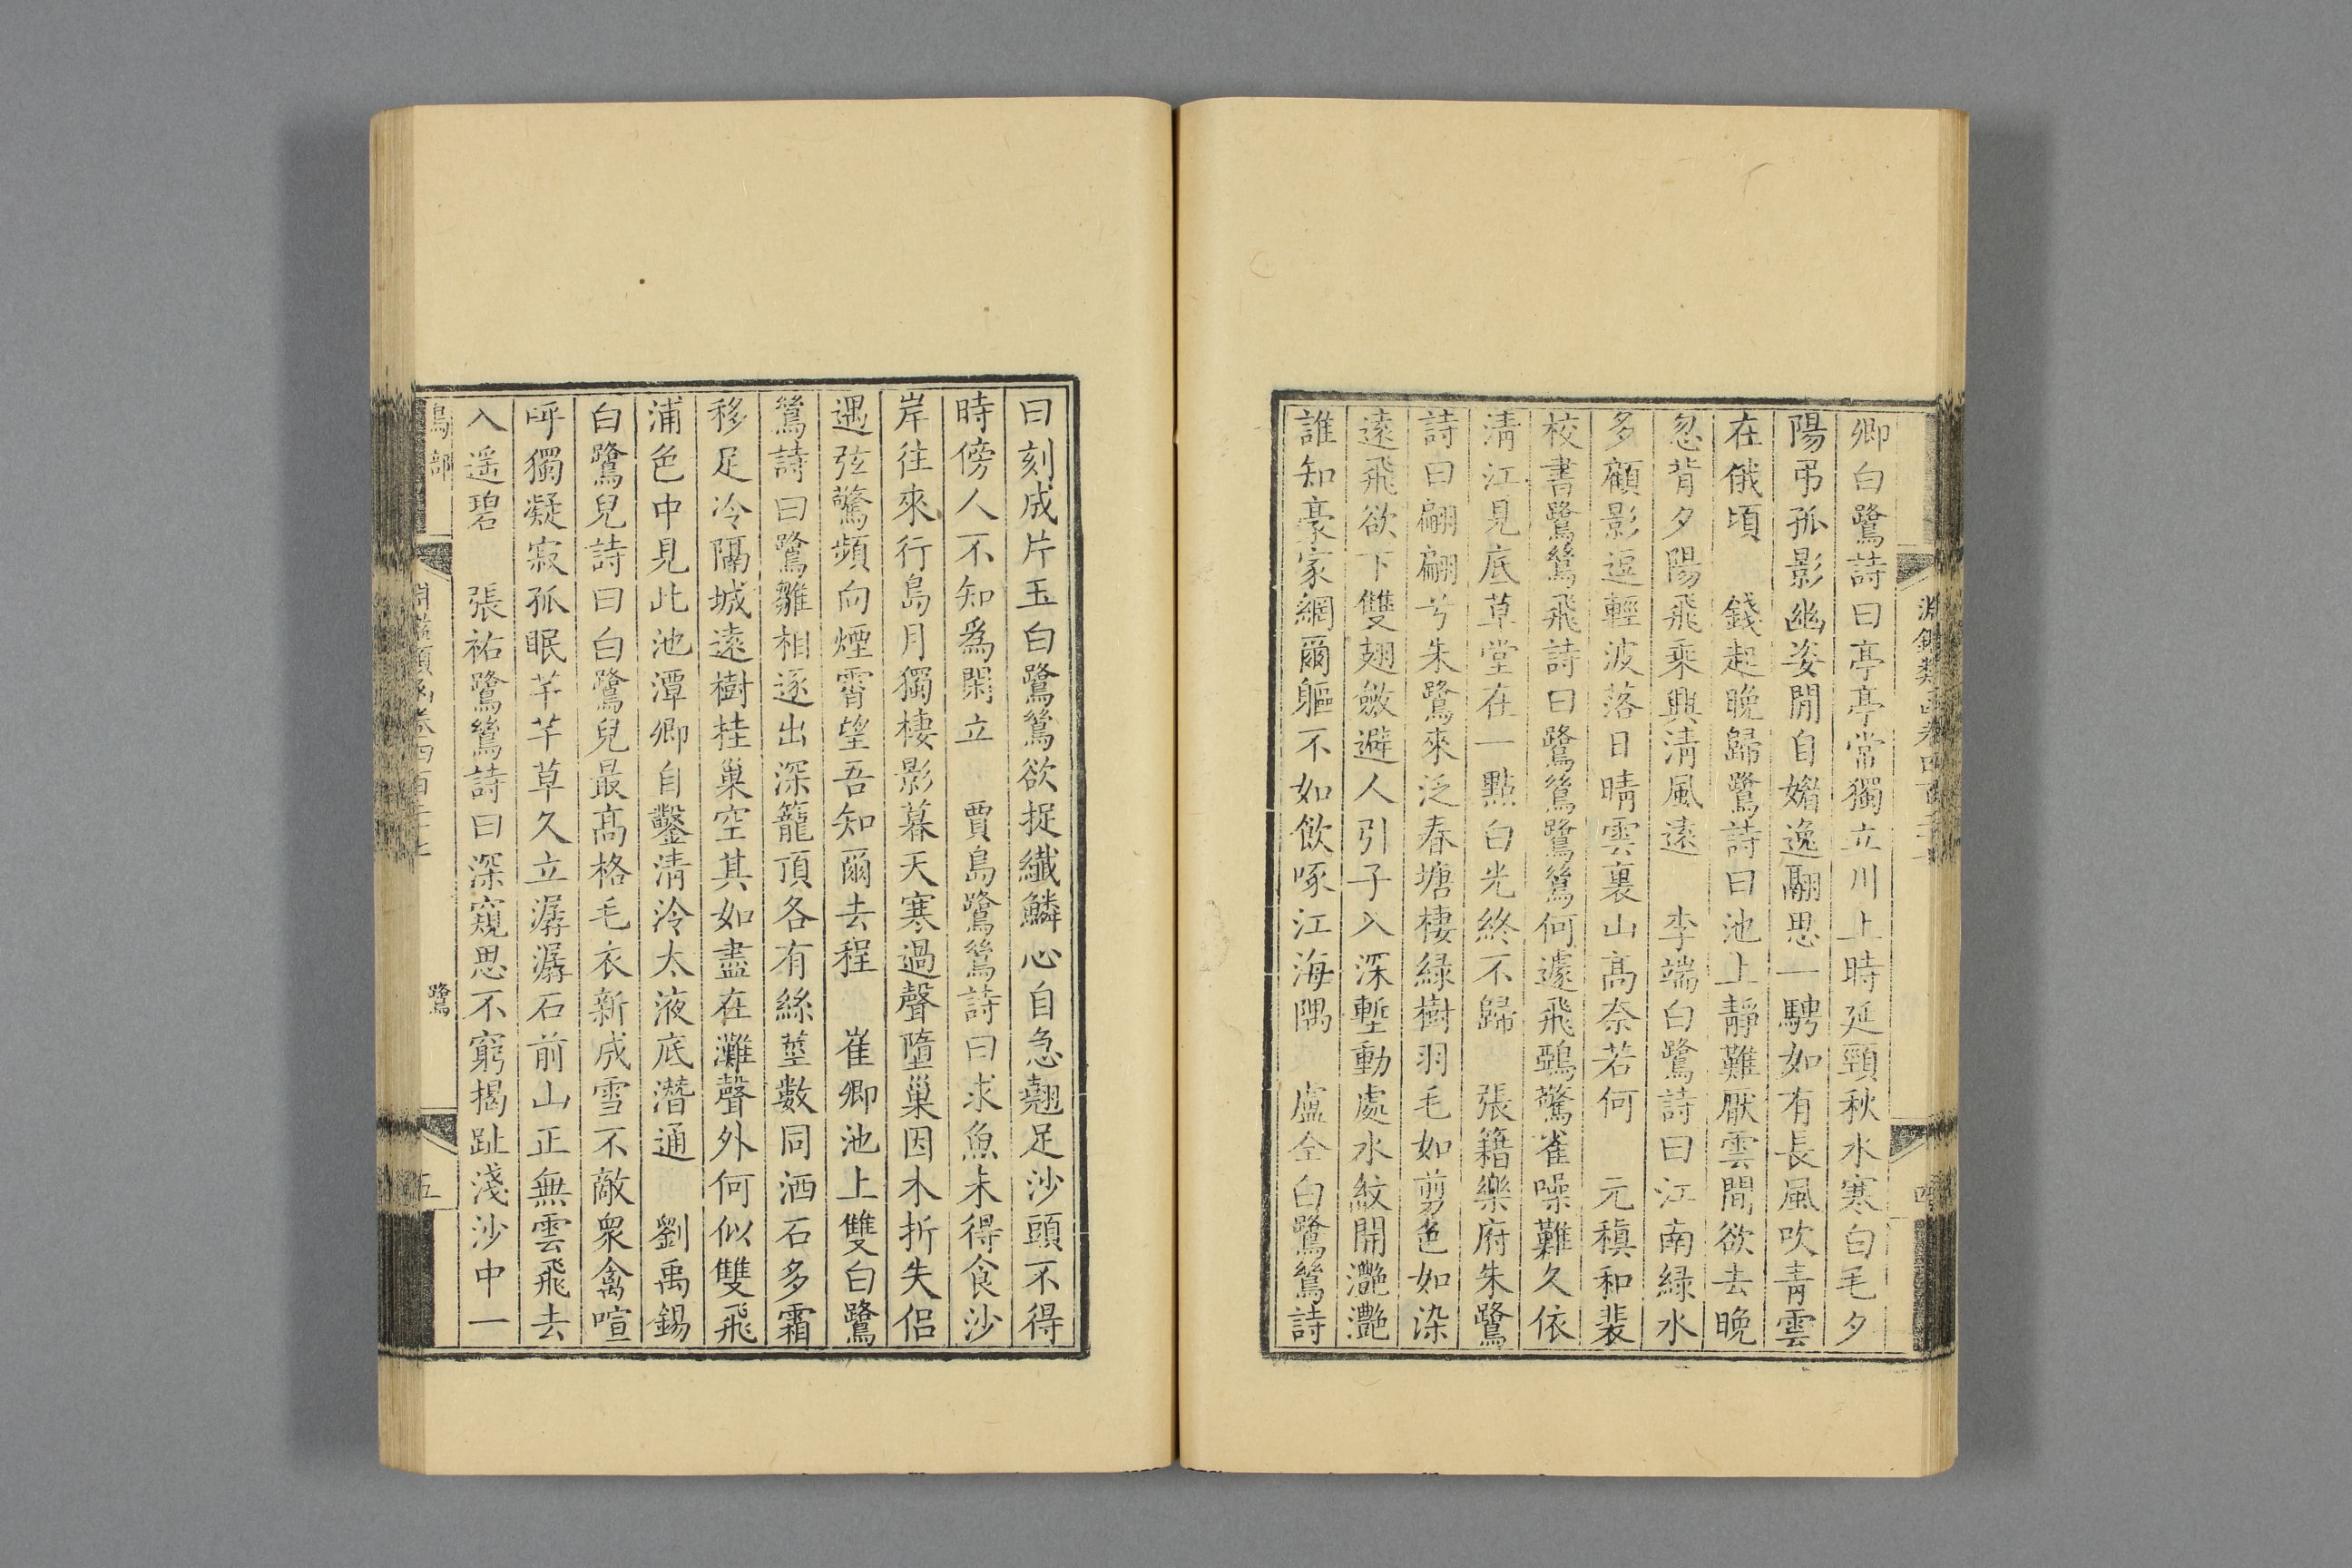 卿白鷺詩曰亭亭常獨立川上時延頸秋水寒白毛夕
陽弔孤影幽姿閒自媚逸翮思一騁如有長風吹青雲
在俄頃　錢起晚歸鷺詩曰池上靜難厭雲間欲去晚
忽背夕陽飛乘興清風遠　李端白鷺詩曰江南綠水
多顧影逗輕波落日晴雲裏山高奈若何　元稹和裴
校書鷺鷥飛詩曰鷺鷥鷺鷥何遽飛鵶驚雀噪難久依
清江見底草堂在一點白光終不歸　張籍樂府朱鷺
詩曰翩翩兮朱鷺來泛春塘棲綠樹羽毛如剪色如染
遠飛欲下雙翅斂避人引子入深塹動處水紋開灔灔
誰知豪家網爾軀不如飲啄江海隅　盧仝白鷺鷥詩
曰刻成片玉白鷺鷥欲捉纖鱗心自急翹足沙頭不得
時傍人不知爲閑立　賈島鷺鷥詩曰求魚未得食沙
岸往來行島月獨棲影暮天寒過聲墮巢因木折失侶
遇弦驚頻向煙霄望吾知爾去程　崔卿池上雙白鷺
鷥詩曰鷺雛相逐出深籠頂各有絲莖數同洒石多霜
移足冷隔城遠樹挂巢空其如盡在灘聲外何似雙飛
浦色中見此池潭卿自鑿清泠太液底潛通　劉禹錫
白鷺兒詩曰白鷺兒最高格毛衣新成雪不敵衆禽喧
呼獨凝寂孤眠芊芊草久立潺潺石前山正無雲飛去
入遥碧　張祐鷺鷥詩曰深窺思不窮揭趾淺沙中一
鳥部
鷺
五